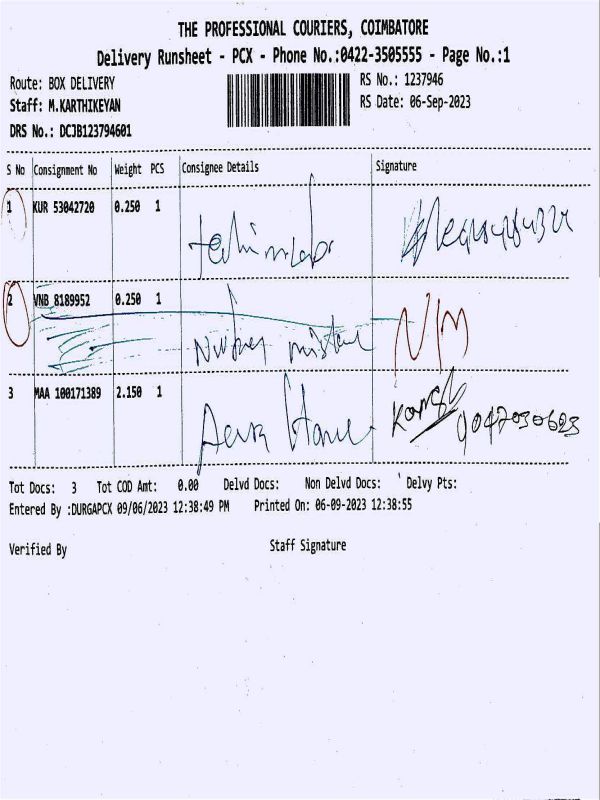 THE PROFESSIONAL COURIERS, COIMBATORE
Delivery Runsheet - PCX - Phone No.:0422-3505555 - Page No.:1
Route: BOX DELIVERY RS No.: 1237946
Staff: M.KARTHIKEYAN RS Date: 06-Sep-2023
DRS No.: DCJB123794601
S No Consignment No Weight PCS Consignee Details Signature
1 KUR 53042720 0.250 1
2 VNB 8189952 0.250 1 N/M
3 MAA 100171389 2.150 1
Tot Docs: 3 Tot COD Amt: 0.00 Delvd Docs: Non Delvd Docs: Delvy Pts:
Entered By :DURGAPCX 09/06/2023 12:38:49 PM Printed On: 06-09-2023 12:38:55
Verified By Staff Signature